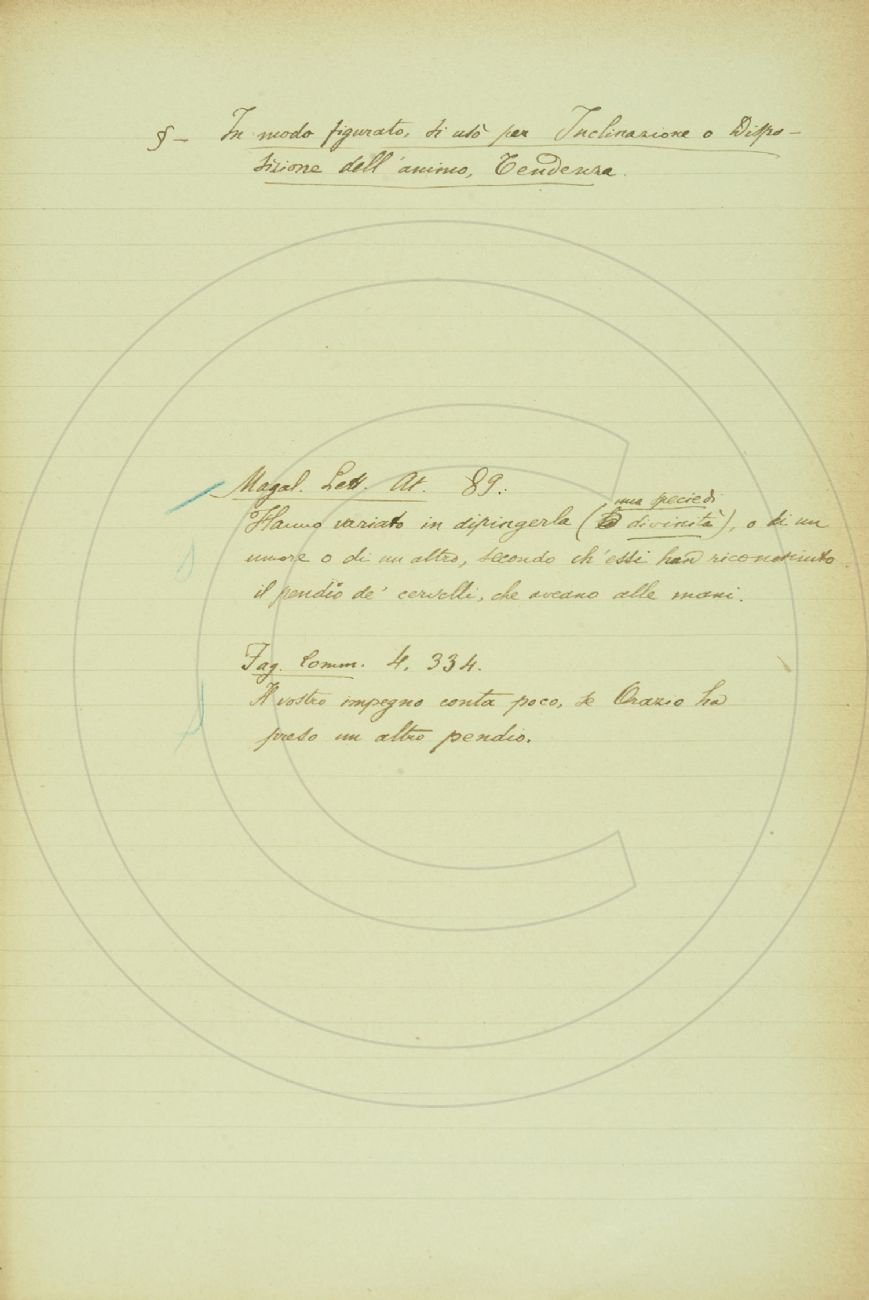 § — In modo figurato, si usò per Inclinazione o Dispo-
sizione dell'animo, Tendenza.
Magal. Lett. At. 89:
una specie di
Hanno variato in dipingerla ( divinità), o di un
umore o di un altro, secondo ch'essi han riconosciuto
il pendio de' cervelli, che aveano alle mani.
Fag. Comm. 4. 334.
Il vostro impegno conta poco, se Orazio ha
preso un altro pendio.